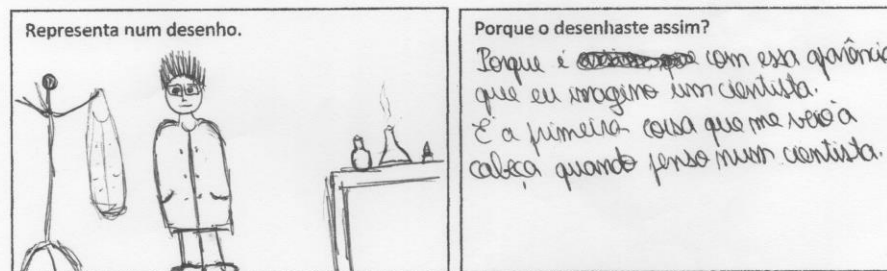 Representa num desenho.
Porque o desenhaste assim?
Porque é com essa aparência
que eu imagino um cientista.
É a primeira coisa que me veio à
cabeça quando penso num cientista.